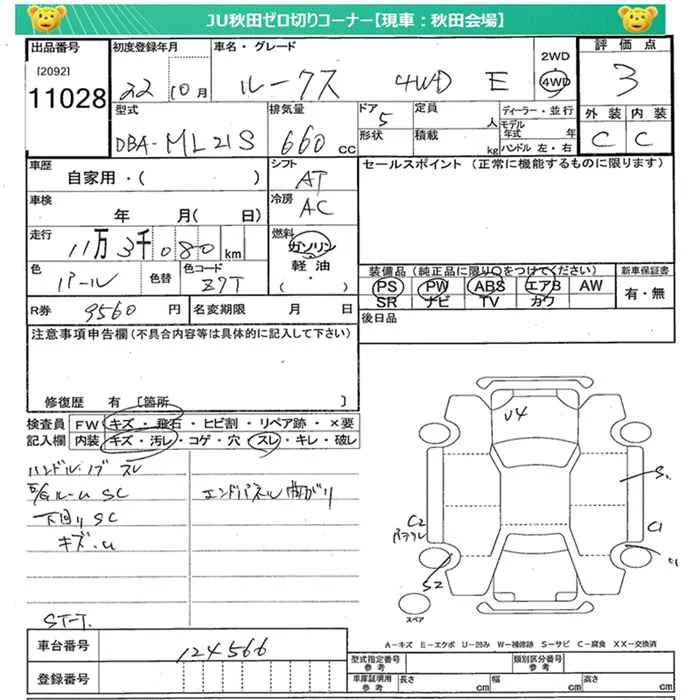 JU秋田ゼロ切りコーナー【現車：秋田会場】
出品番号
[2092]
11028
初度登録年月
22 10月
車名・グレード
ルークス 4WD E
2WD
4WD
評価点
3
外装 内装
C C
型式
DBA-ML21S
排気量
660 cc
ドア
5
形状
定員
人
積載
kg
ディーラー・並行
モデル
年式 年
ハンドル 左・右
車歴
自家用・( )
シフト
AT
セールスポイント (正常に機能するものに限ります)
車検
年 月( 日)
冷房
AC
走行
11万3千080km
燃料
ガソリン
軽油
( ・ )
色
パール
色替
色コード
Z7T
装備品(純正品に限り○をつけてください)
新車保証書
PS PW ABS エアB AW
有・無
SR ナビ TV カワ
R券
9560 円
名変期限 月 日
後日品
注意事項申告欄(不具合内容等は具体的に記入して下さい)
修復歴 有 [箇所 ]
検査員
記入欄
FW キズ・飛石・ヒビ割・リペア跡・×要
内装 キズ・汚レ・コゲ・穴・スレ・キレ・破レ
ハンドル・ノブ スレ
SC
エンドパネル曲がり
下回りSC
キズ・U
ST-T.
U4
S.
C2
C1
S2
スペア
車台番号
124566
登録番号
A－キズ E－エクボ U－凹み W－補修跡 S－サビ C－腐食 XX－交換済
型式指定番号
参考
類別区分番号
参考
車庫証明用
参考
長さ cm 幅 cm 高さ cm